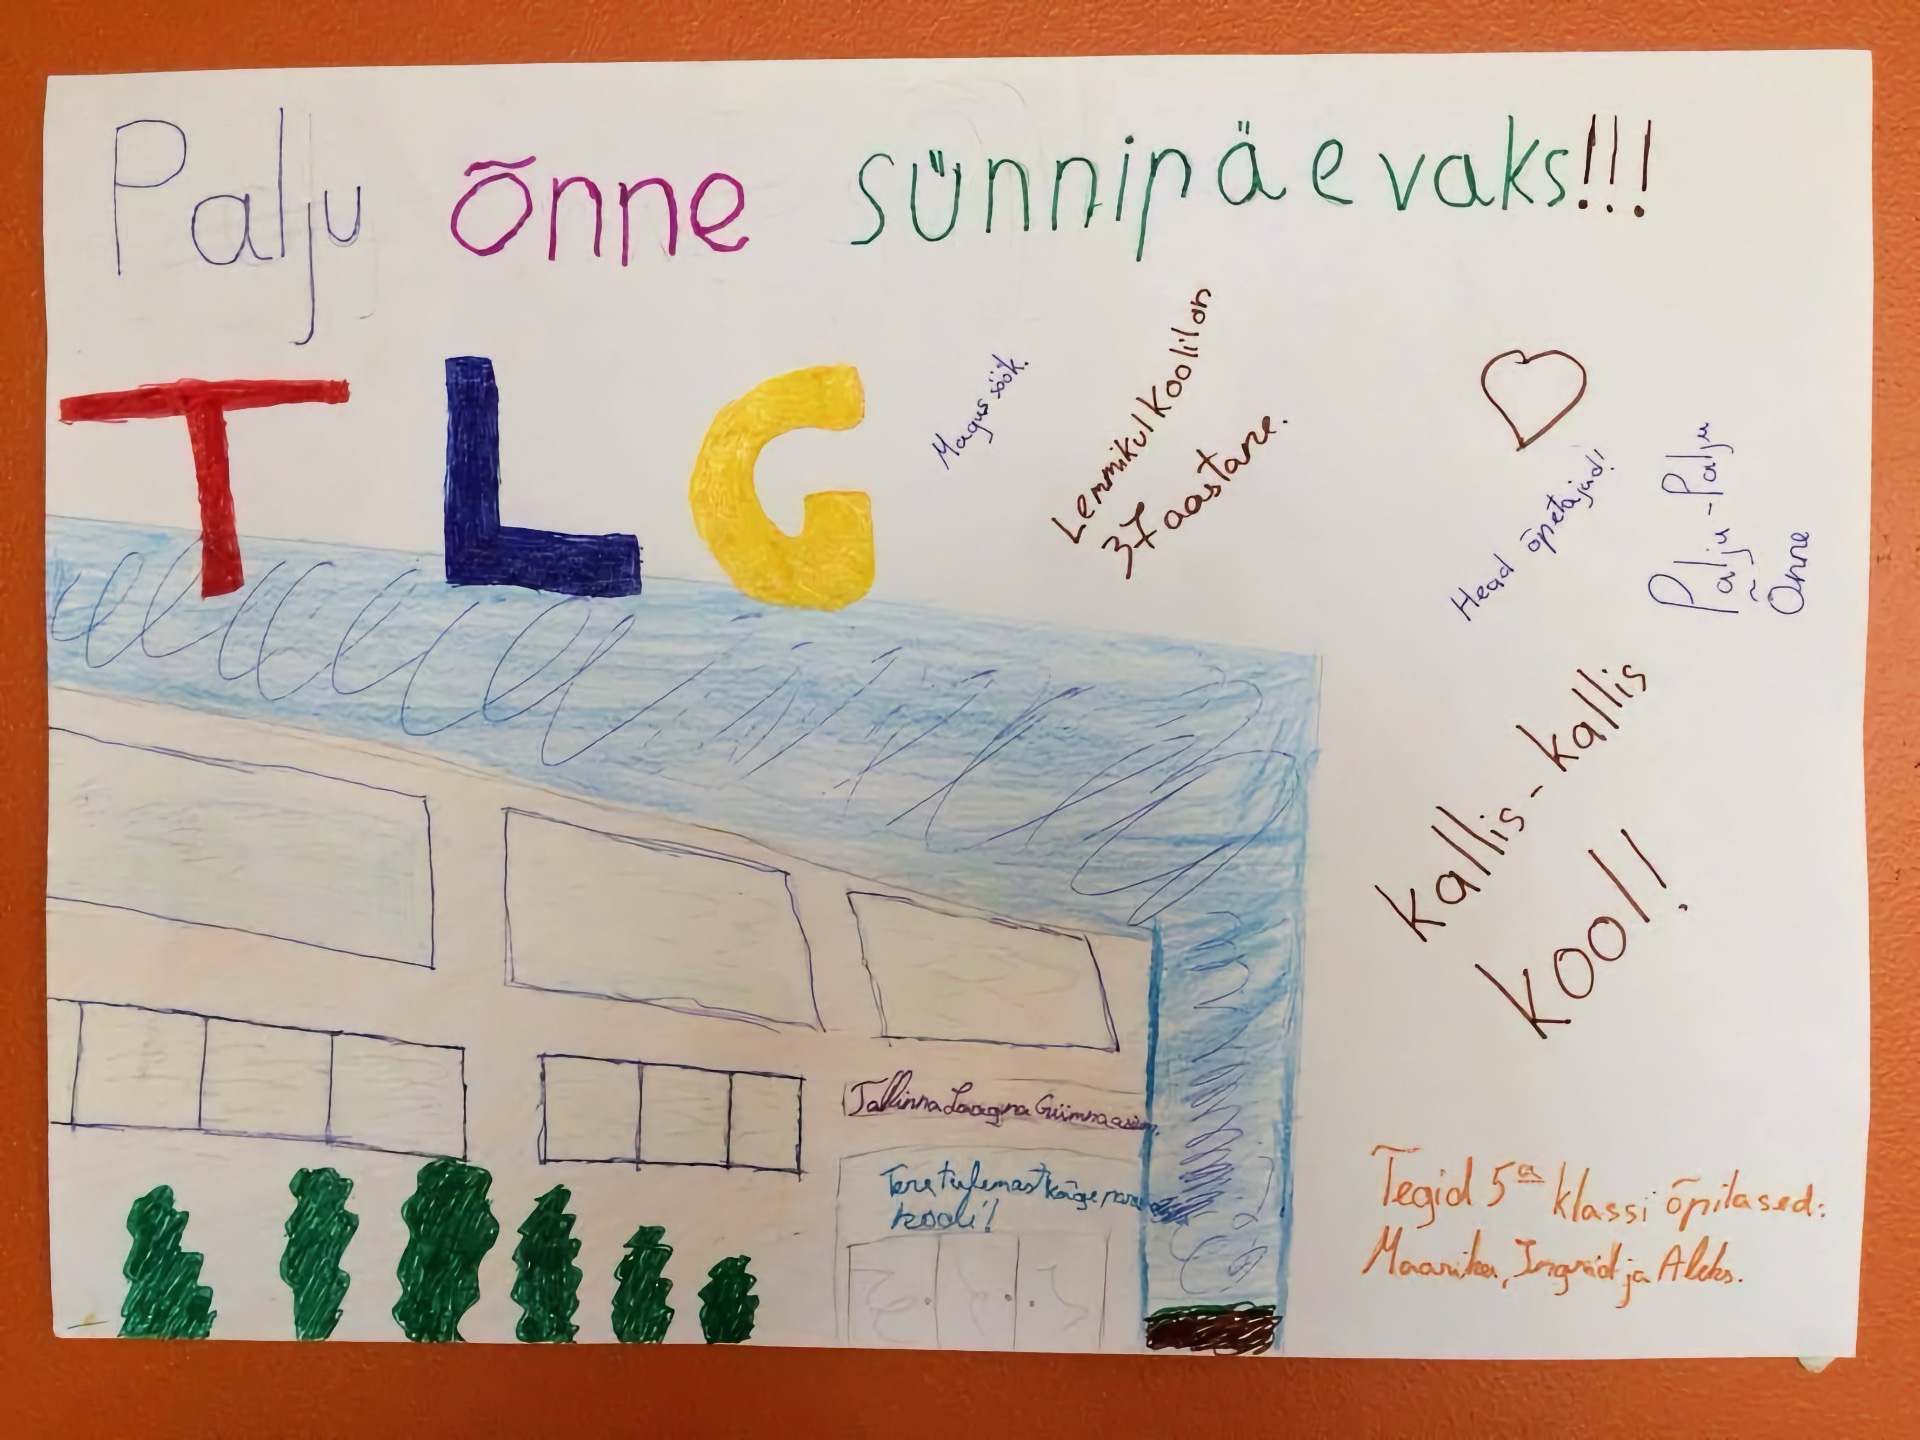 Palju õnne sünnipäevaks!!!
TLG
Magus söök.
Lemmikul koolil on
37 aastane.
Head õpetajad!
Palju-Palju
Õnne
kallis-kallis
kool!
Tallinna Laagna Gümnaasium.
Tere tulemast kõige
kooli!
Tegid 5a klassi õpilased:
Maarika, Ingrid ja Aleks.